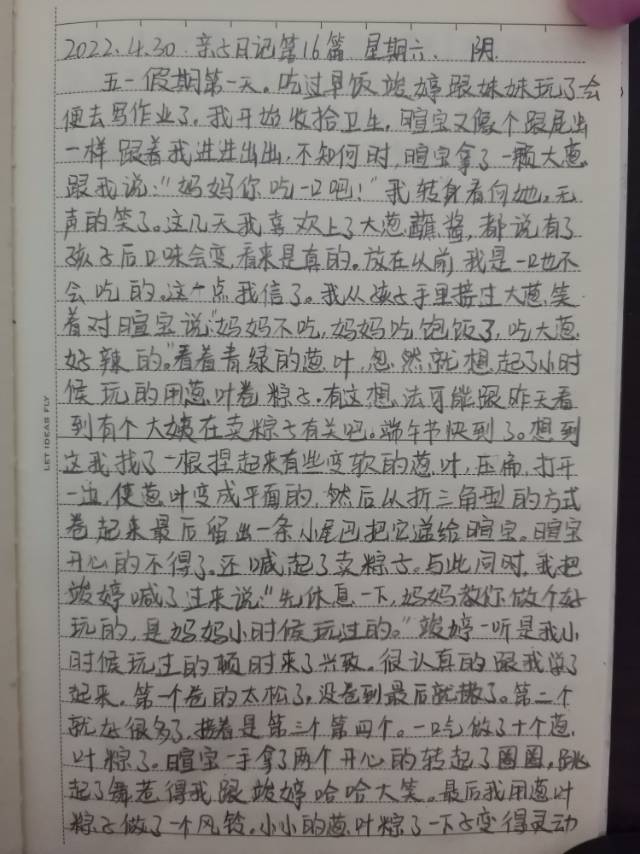 2022.4.30 亲子日记第16篇 星期六. 阴.
五一假期第一天。吃过早饭竣婷跟妹妹玩了会
便去写作业了。我开始收拾卫生，暄宝又像个跟屁虫
一样跟着我进进出出，不知何时，暄宝拿了一颗大葱
跟我说："妈妈你吃一口吧！"我转身看向她，无
声的笑了。这几天我喜欢上了大葱蘸酱，都说有了
孩子后口味会变，看来是真的。放在以前，我是一口也不
会吃的。这一点我信了。我从孩子手里接过大葱，笑
着对暄宝说"妈妈不吃，妈妈吃饱饭了，吃大葱
好辣的。"看着青绿的葱叶，忽然就想起了小时
候玩的用葱叶卷粽子。有这想法可能跟昨天看
到有个大姨在卖粽子有关吧。端午节快到了。想到
这我找了一根捏起来有些变软的葱叶，压扁，打开
一边，使葱叶变成平面的，然后从折三角型的方式
卷起来最后留出一条小尾巴把它递给暄宝。暄宝
开心的不得了，还喊起了卖粽子。与此同时，我把
竣婷喊了过来说："先休息一下，妈妈教你做个好
玩的，是妈妈小时候玩过的。"竣婷一听是我小
时候玩过的顿时来了兴致。很认真的跟我学了
起来。第一个卷的太松了，没卷到最后就散了。第二个
就好很多了，接着是第三个第四个。一口气做了十个葱
叶粽了。暄宝一手拿了两个开心的转起了圈圈，跳
起了舞惹得我跟竣婷哈哈大笑。最后我用葱叶
粽子做了一个风铃。小小的葱叶粽了一下子变得灵动
LET IDEAS FLY